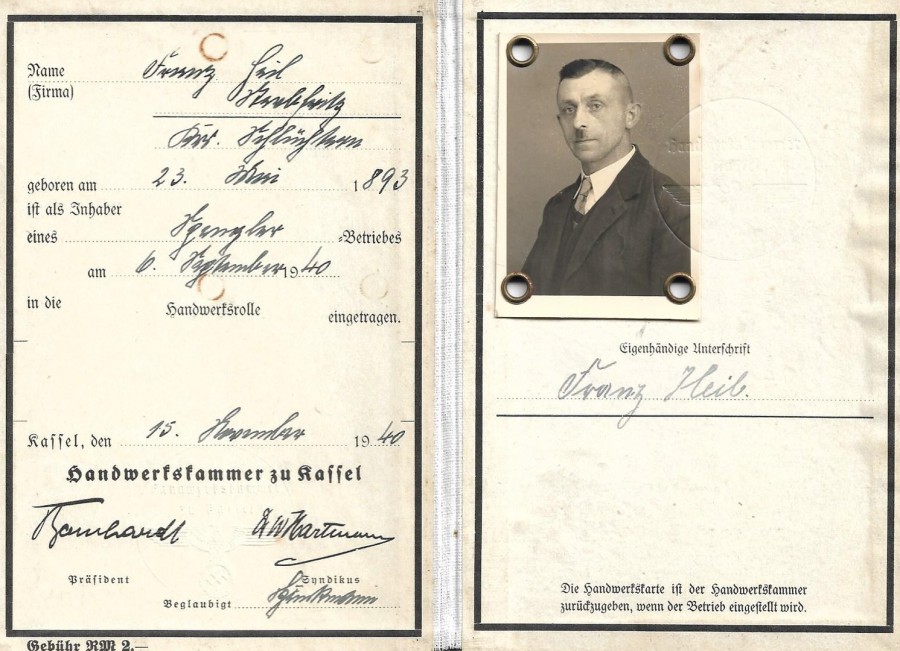 Name Franz Heil
(Firma) Sterbfritz
Krs. Schlüchtern
geboren am 23. Mai 1893
ist als Inhaber
eines Spengler -Betriebes
am 6. September 1940
in die Handwerksrolle eingetragen.
Kassel, den 15. November 1940
Handwerkskammer zu Kassel
Präsident Syndikus
Beglaubigt
Gebühr RM 2.—
Eigenhändige Unterschrift
Franz Heil.
Die Handwerkskarte ist der Handwerkskammer
zurückzugeben, wenn der Betrieb eingestellt wird.